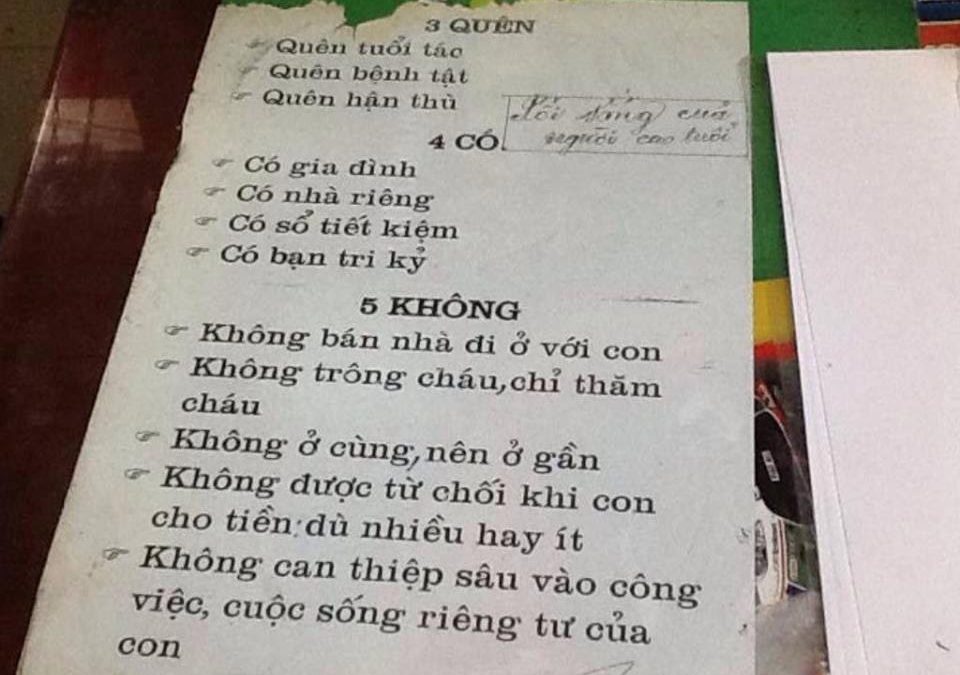 3 QUÊN
Quên tuổi tác
Quên bệnh tật
Quên hận thù
Lối sống của
người cao tuổi
4 CÓ
Có gia đình
Có nhà riêng
Có sổ tiết kiệm
Có bạn tri kỷ
5 KHÔNG
Không bán nhà đi ở với con
Không trông cháu, chỉ thăm
cháu
Không ở cùng, nên ở gần
Không được từ chối khi con
cho tiền: dù nhiều hay ít
Không can thiệp sâu vào công
việc, cuộc sống riêng tư của
con